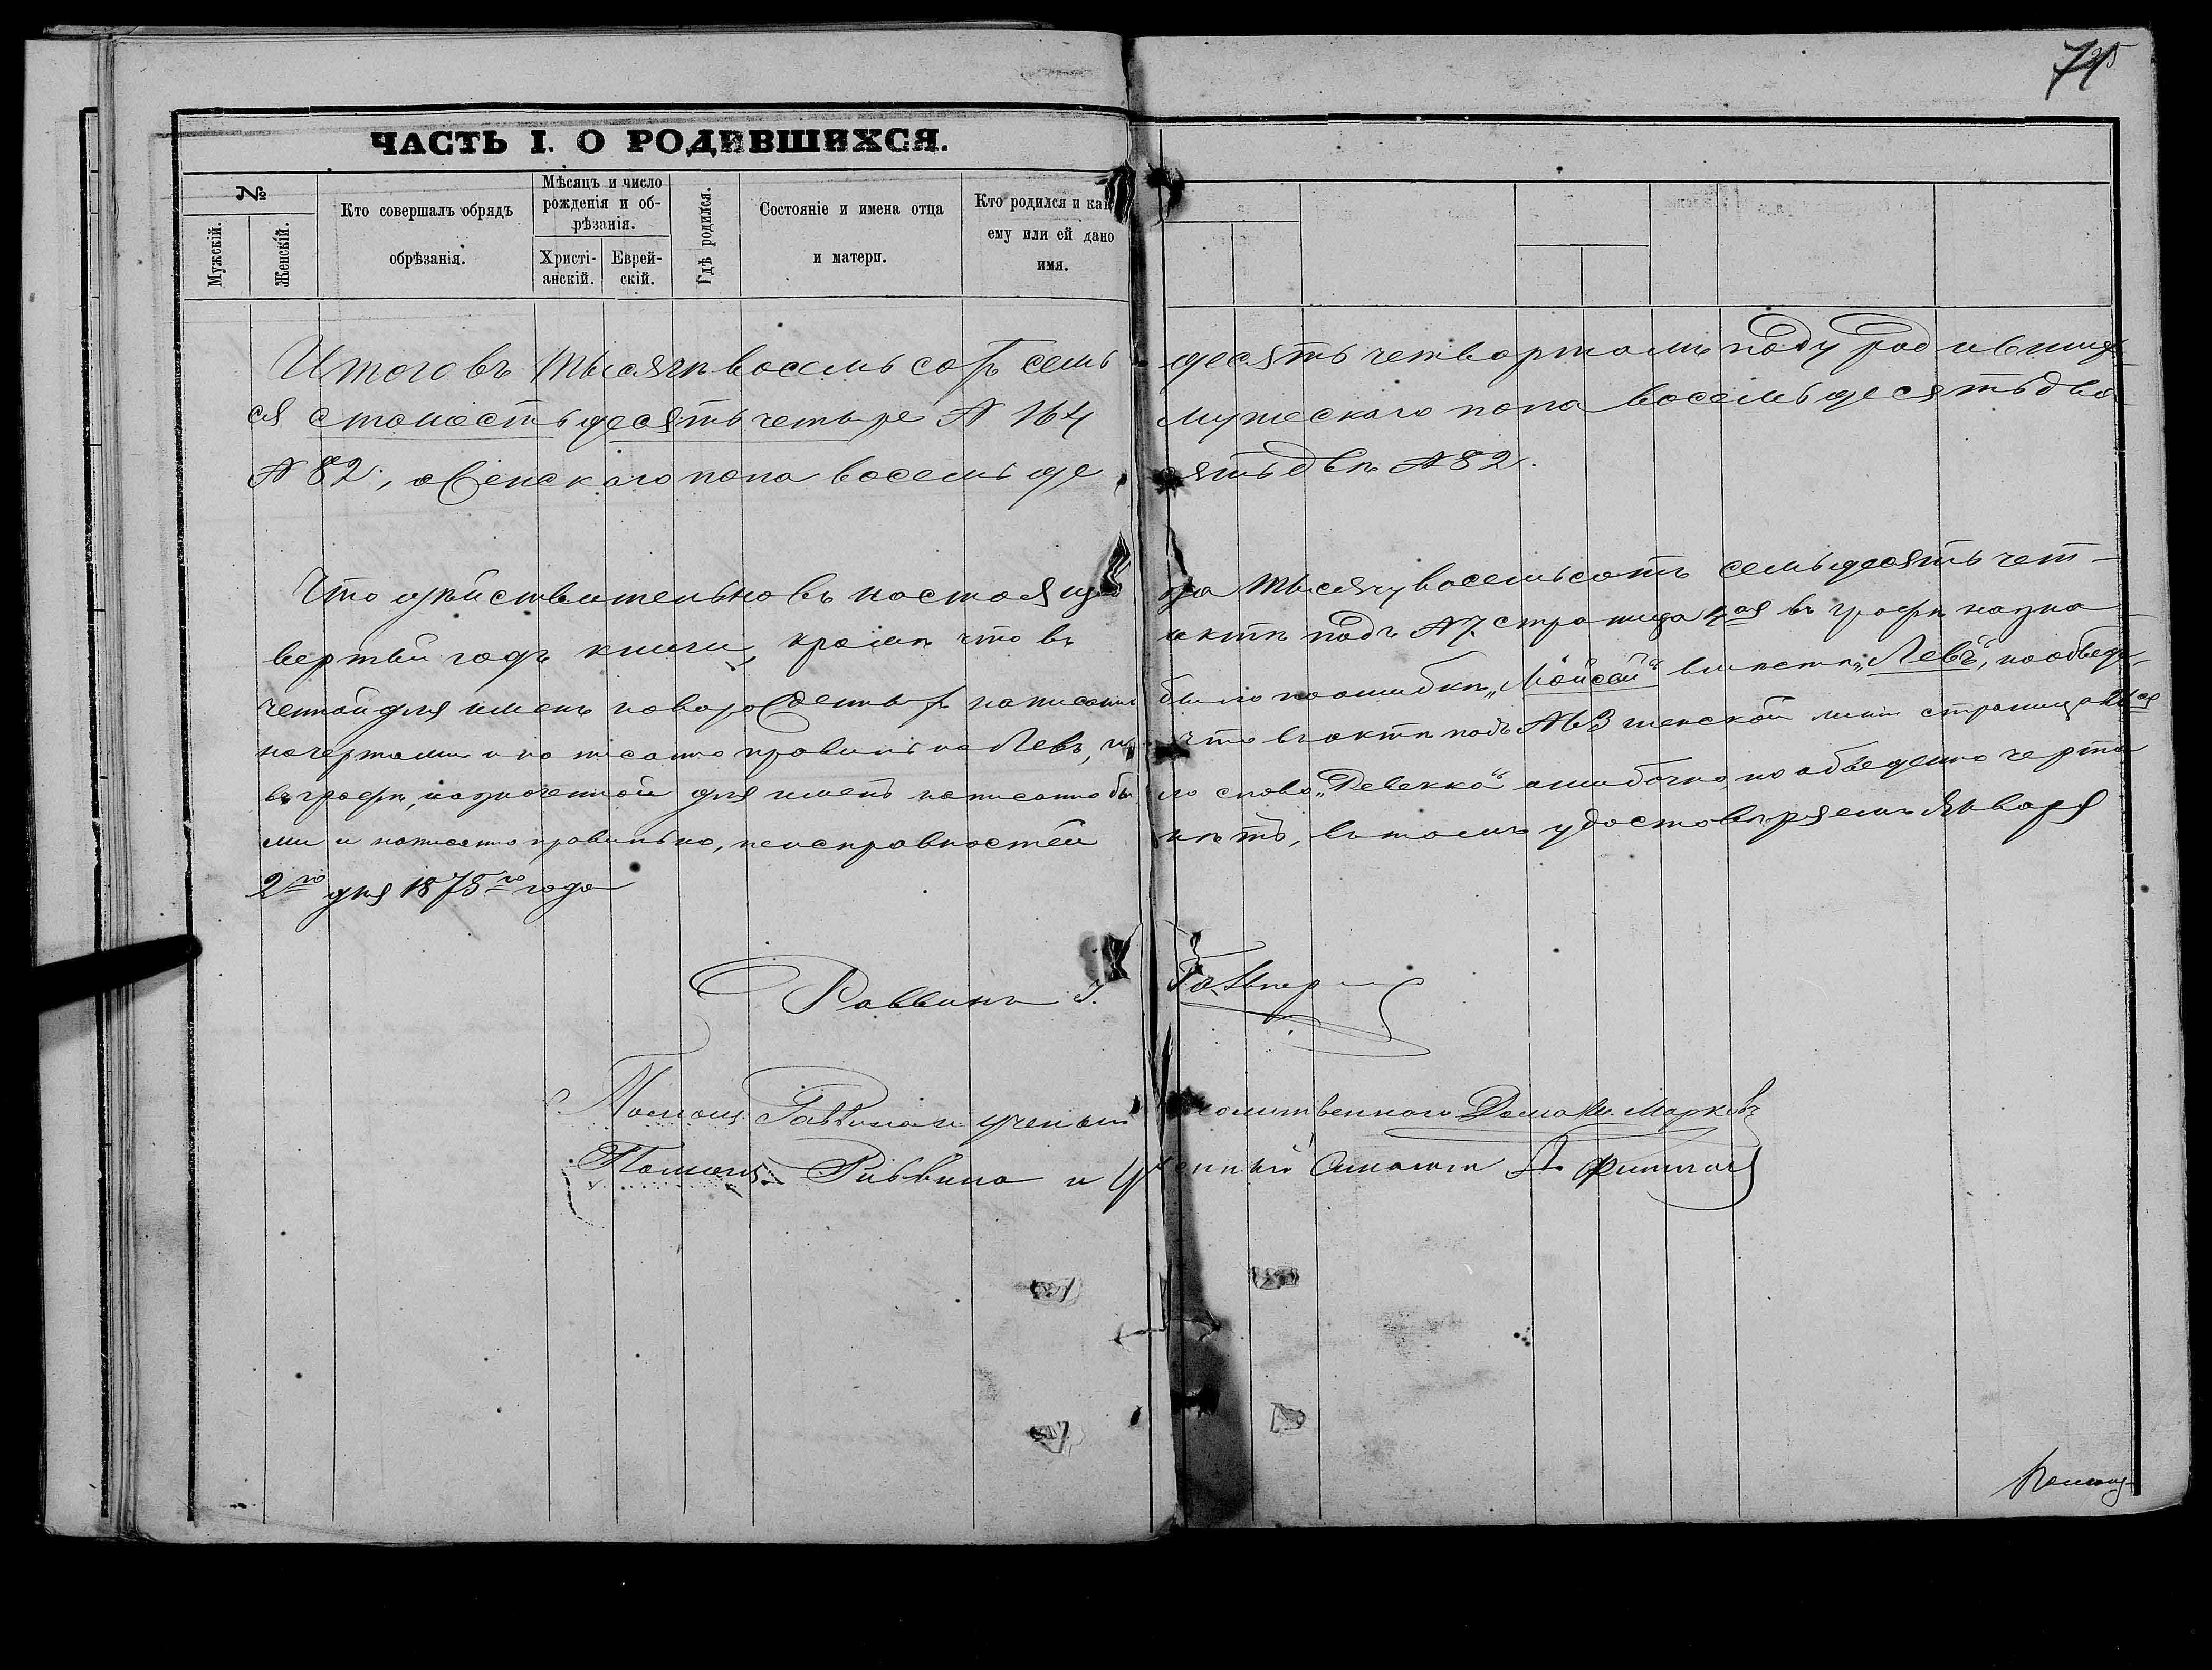 75
ЧАСТЬ I. О РОДИВШИХСЯ.
№
Мужскій.
Женскій.
Кто совершалъ обрядъ
обрѣзанія.
Мѣсяцъ и число
рожденія и об-
рѣзанія.
Христі-
анскій.
Еврей-
скій.
Гдѣ родился.
Состояніе и имена отца
и матери.
Кто родился и как
ему или ей дано
имя.
Итого въ тысяча восемьсотъ семь десять четвертомъ году родивших
ся сто шесть десять четыре № 164 мужескаго пола восемь десять два
№ 82, женскаго пола восемь де сять двѣ № 82.
Что дѣйствительно въ настоящей на тысячу восемьсотъ семьдесять чет-
вертый годъ книги, кромѣ что въ актѣ подъ № 7. страница 4ая въ графѣ назна
ченной для именъ новорожденныхъ написано было по ошибкѣ „Мойсей“ вмѣсто „Левъ“, но обведе-
но чертами и написано правильно Левъ, и что въ актѣ подъ № 63 женской линіи страница
въ графѣ, назначенной для именъ написано бы ло слово „Ревекка“ ошибочно, но обведено черта
ми и написано правильно, неисправностей нѣтъ, въ томъ удостовѣряемъ Января
2го дня 1875го года
Раввинъ Г.
Помощ. Раввина и ученый молитвеннаго Дома Марковъ
Помощ. Раввина и Ученный
Помощ-